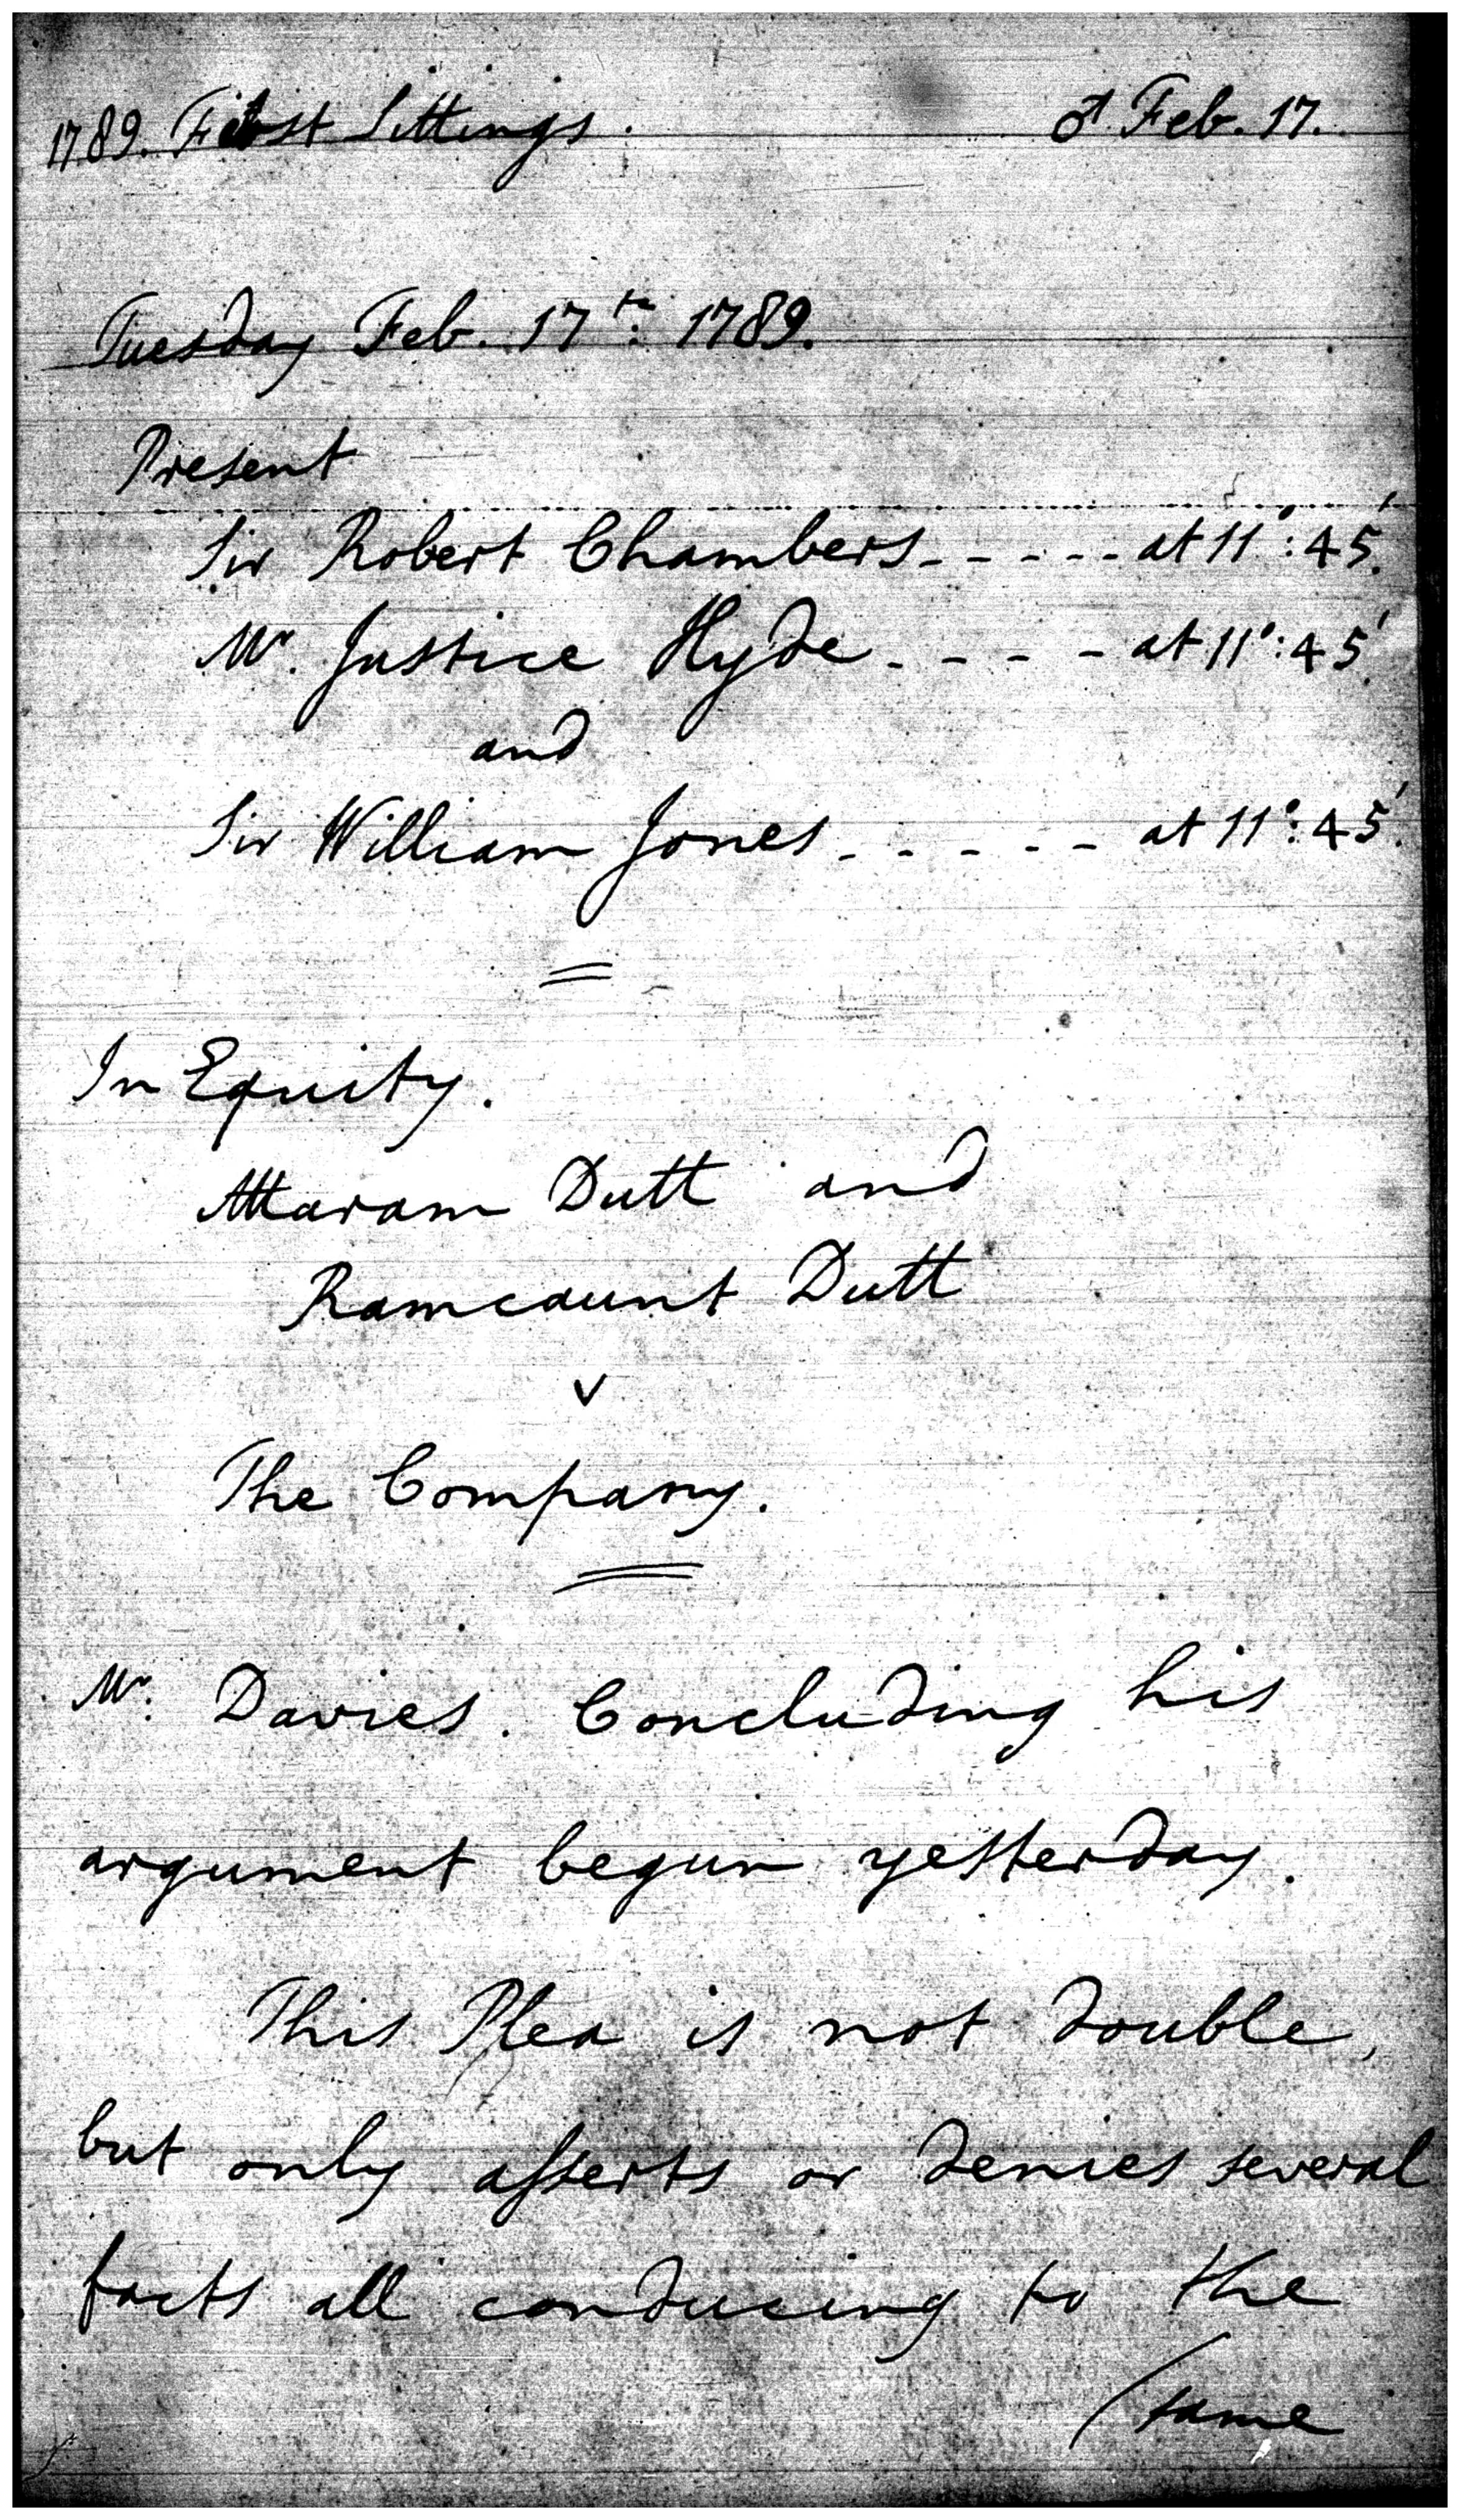 1789. First Sittings. ♂ Feb. 17.
Tuesday Feb. 17th. 1789.
Present
Sir Robert Chambers - - - - - at 11°: 45'.
Mr. Justice Hyde - - - - at 11°: 45'.
and
Sir William Jones - - - - - at 11°: 45'.
In Equity.
Attaram Dutt and
Ramcaunt Dutt
v
The Company.
Mr. Davies. Concluding his
argument begun yesterday.
This Plea is not double,
but only aſserts or denies several
facts all conducing to the
(same